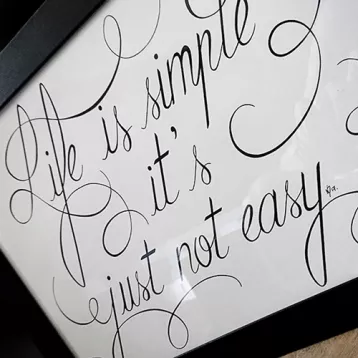 Life is simple
it's
just not easy